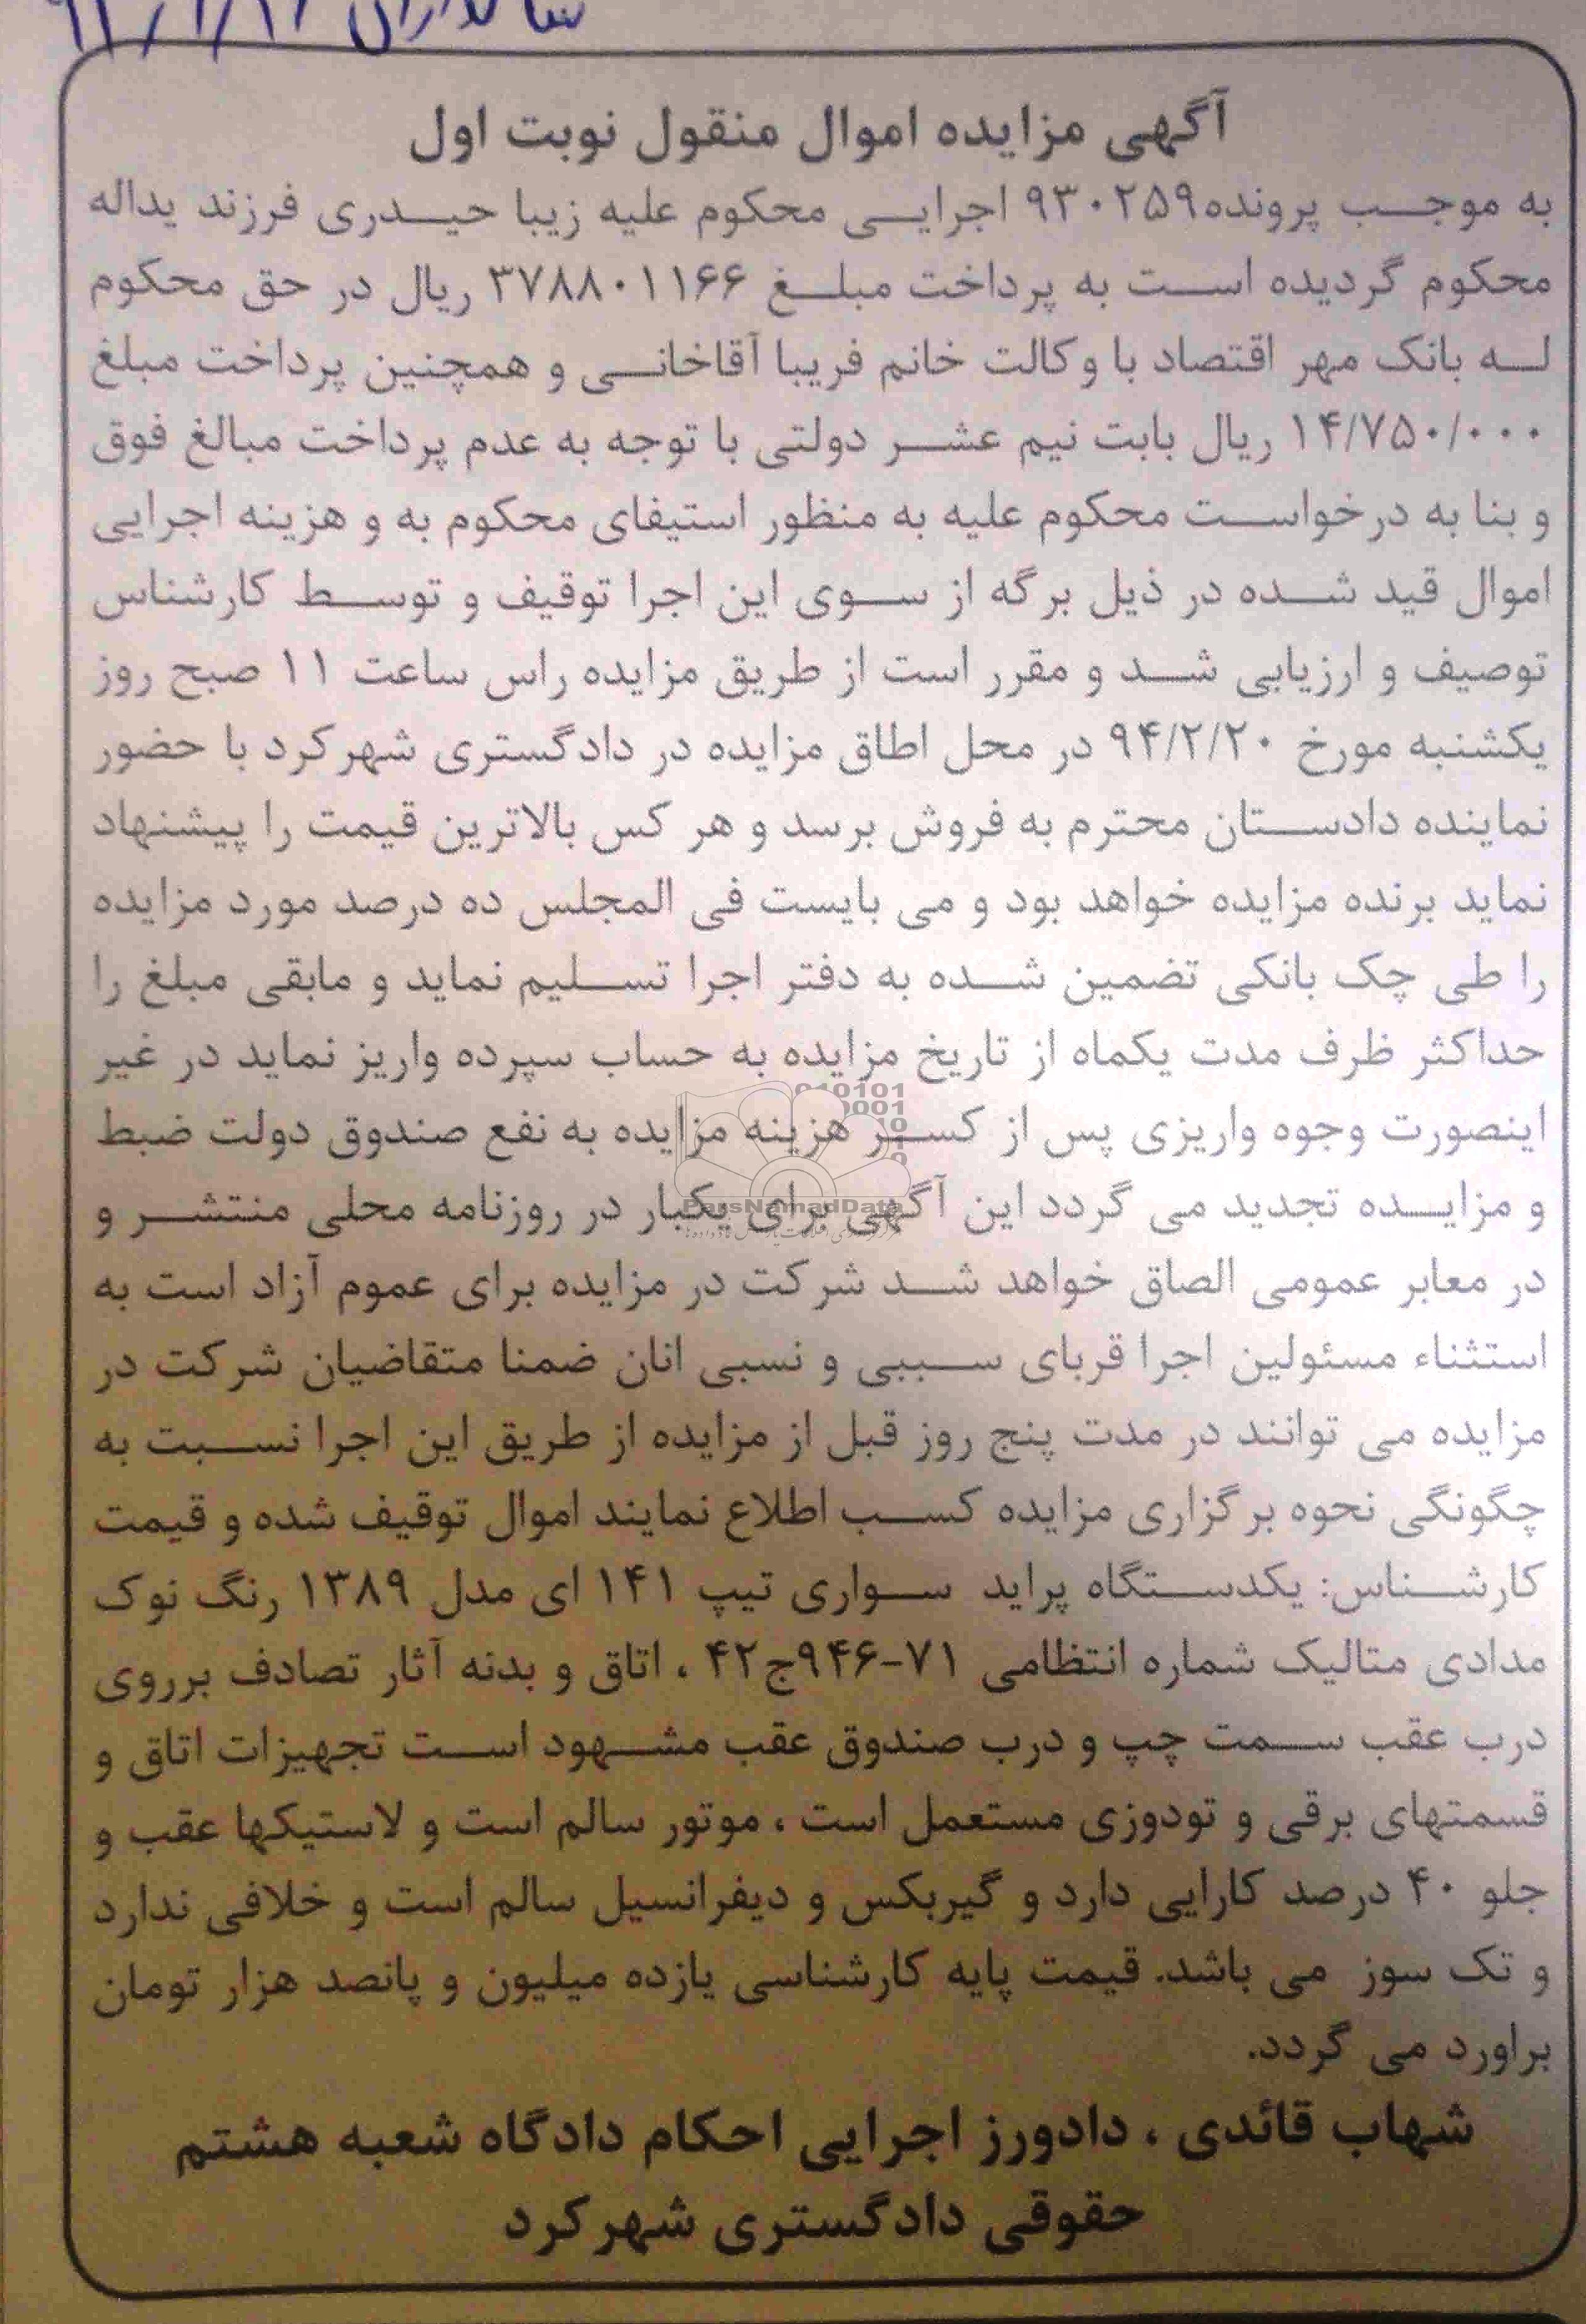 آگهی مزایده اموال منقول نوبت اول
به موجب پرونده۹۳۰۲۵۹ اجرایی محکوم علیه زیبا حیدری فرزند یداله
محکوم گردیده است به پرداخت مبلغ ۳۷۸۸۰۱۱۶۶ ریال در حق محکوم
له بانک مهر اقتصاد با وکالت خانم فریبا آقاخانی و همچنین پرداخت مبلغ
۱۴/۷۵۰/۰۰۰ ریال بابت نیم عشر دولتی با توجه به عدم پرداخت مبالغ فوق
و بنا به درخواست محکوم علیه به منظور استیفای محکوم به و هزینه اجرایی
اموال قید شده در ذیل برگه از سوی این اجرا توقیف و توسط کارشناس
توصیف و ارزیابی شد و مقرر است از طریق مزایده راس ساعت ۱۱ صبح روز
یکشنبه مورخ ۹۴/۲/۲۰ در محل اطاق مزایده در دادگستری شهرکرد با حضور
نماینده دادستان محترم به فروش برسد و هر کس بالاترین قیمت را پیشنهاد
نماید برنده مزایده خواهد بود و می بایست فی المجلس ده درصد مورد مزایده
را طی چک بانکی تضمین شده به دفتر اجرا تسلیم نماید و مابقی مبلغ را
حداکثر ظرف مدت یکماه از تاریخ مزایده به حساب سپرده واریز نماید در غیر
اینصورت وجوه واریزی پس از کسر هزینه مزایده به نفع صندوق دولت ضبط
و مزایده تجدید می گردد این آگهی برای یکبار در روزنامه محلی منتشر و
در معابر عمومی الصاق خواهد شد شرکت در مزایده برای عموم آزاد است به
استثناء مسئولین اجرا قربای سببی و نسبی انان ضمنا متقاضیان شرکت در
مزایده می توانند در مدت پنج روز قبل از مزایده از طریق این اجرا نسبت به
چگونگی نحوه برگزاری مزایده کسب اطلاع نمایند اموال توقیف شده و قیمت
کارشناس: یکدستگاه پراید سواری تیپ ۱۴۱ ای مدل ۱۳۸۹ رنگ نوک
مدادی متالیک شماره انتظامی ۷۱-۹۴۶ج۴۲ ، اتاق و بدنه آثار تصادف برروی
درب عقب سمت چپ و درب صندوق عقب مشهود است تجهیزات اتاق و
قسمتهای برقی و تودوزی مستعمل است ، موتور سالم است و لاستیکها عقب و
جلو ۴۰ درصد کارایی دارد و گیربکس و دیفرانسیل سالم است و خلافی ندارد
و تک سوز می باشد. قیمت پایه کارشناسی یازده میلیون و پانصد هزار تومان
براورد می گردد.
شهاب قائدی ، دادورز اجرایی احکام دادگاه شعبه هشتم
حقوقی دادگستری شهرکرد
ParsNamadData